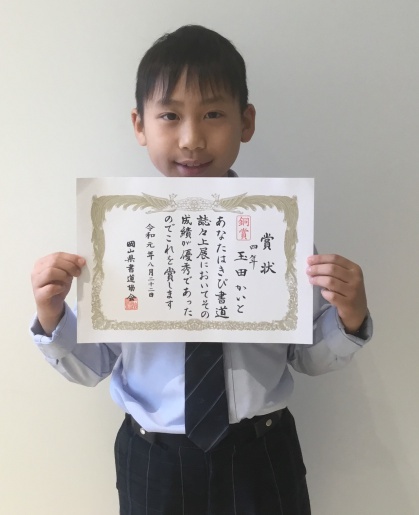 賞状
銅賞
四年
玉田かいと
あなたはきび書道
誌々上展においてその
成績が優秀であった
のでこれを賞します
令和元年八月二十二日
岡山県書道協会